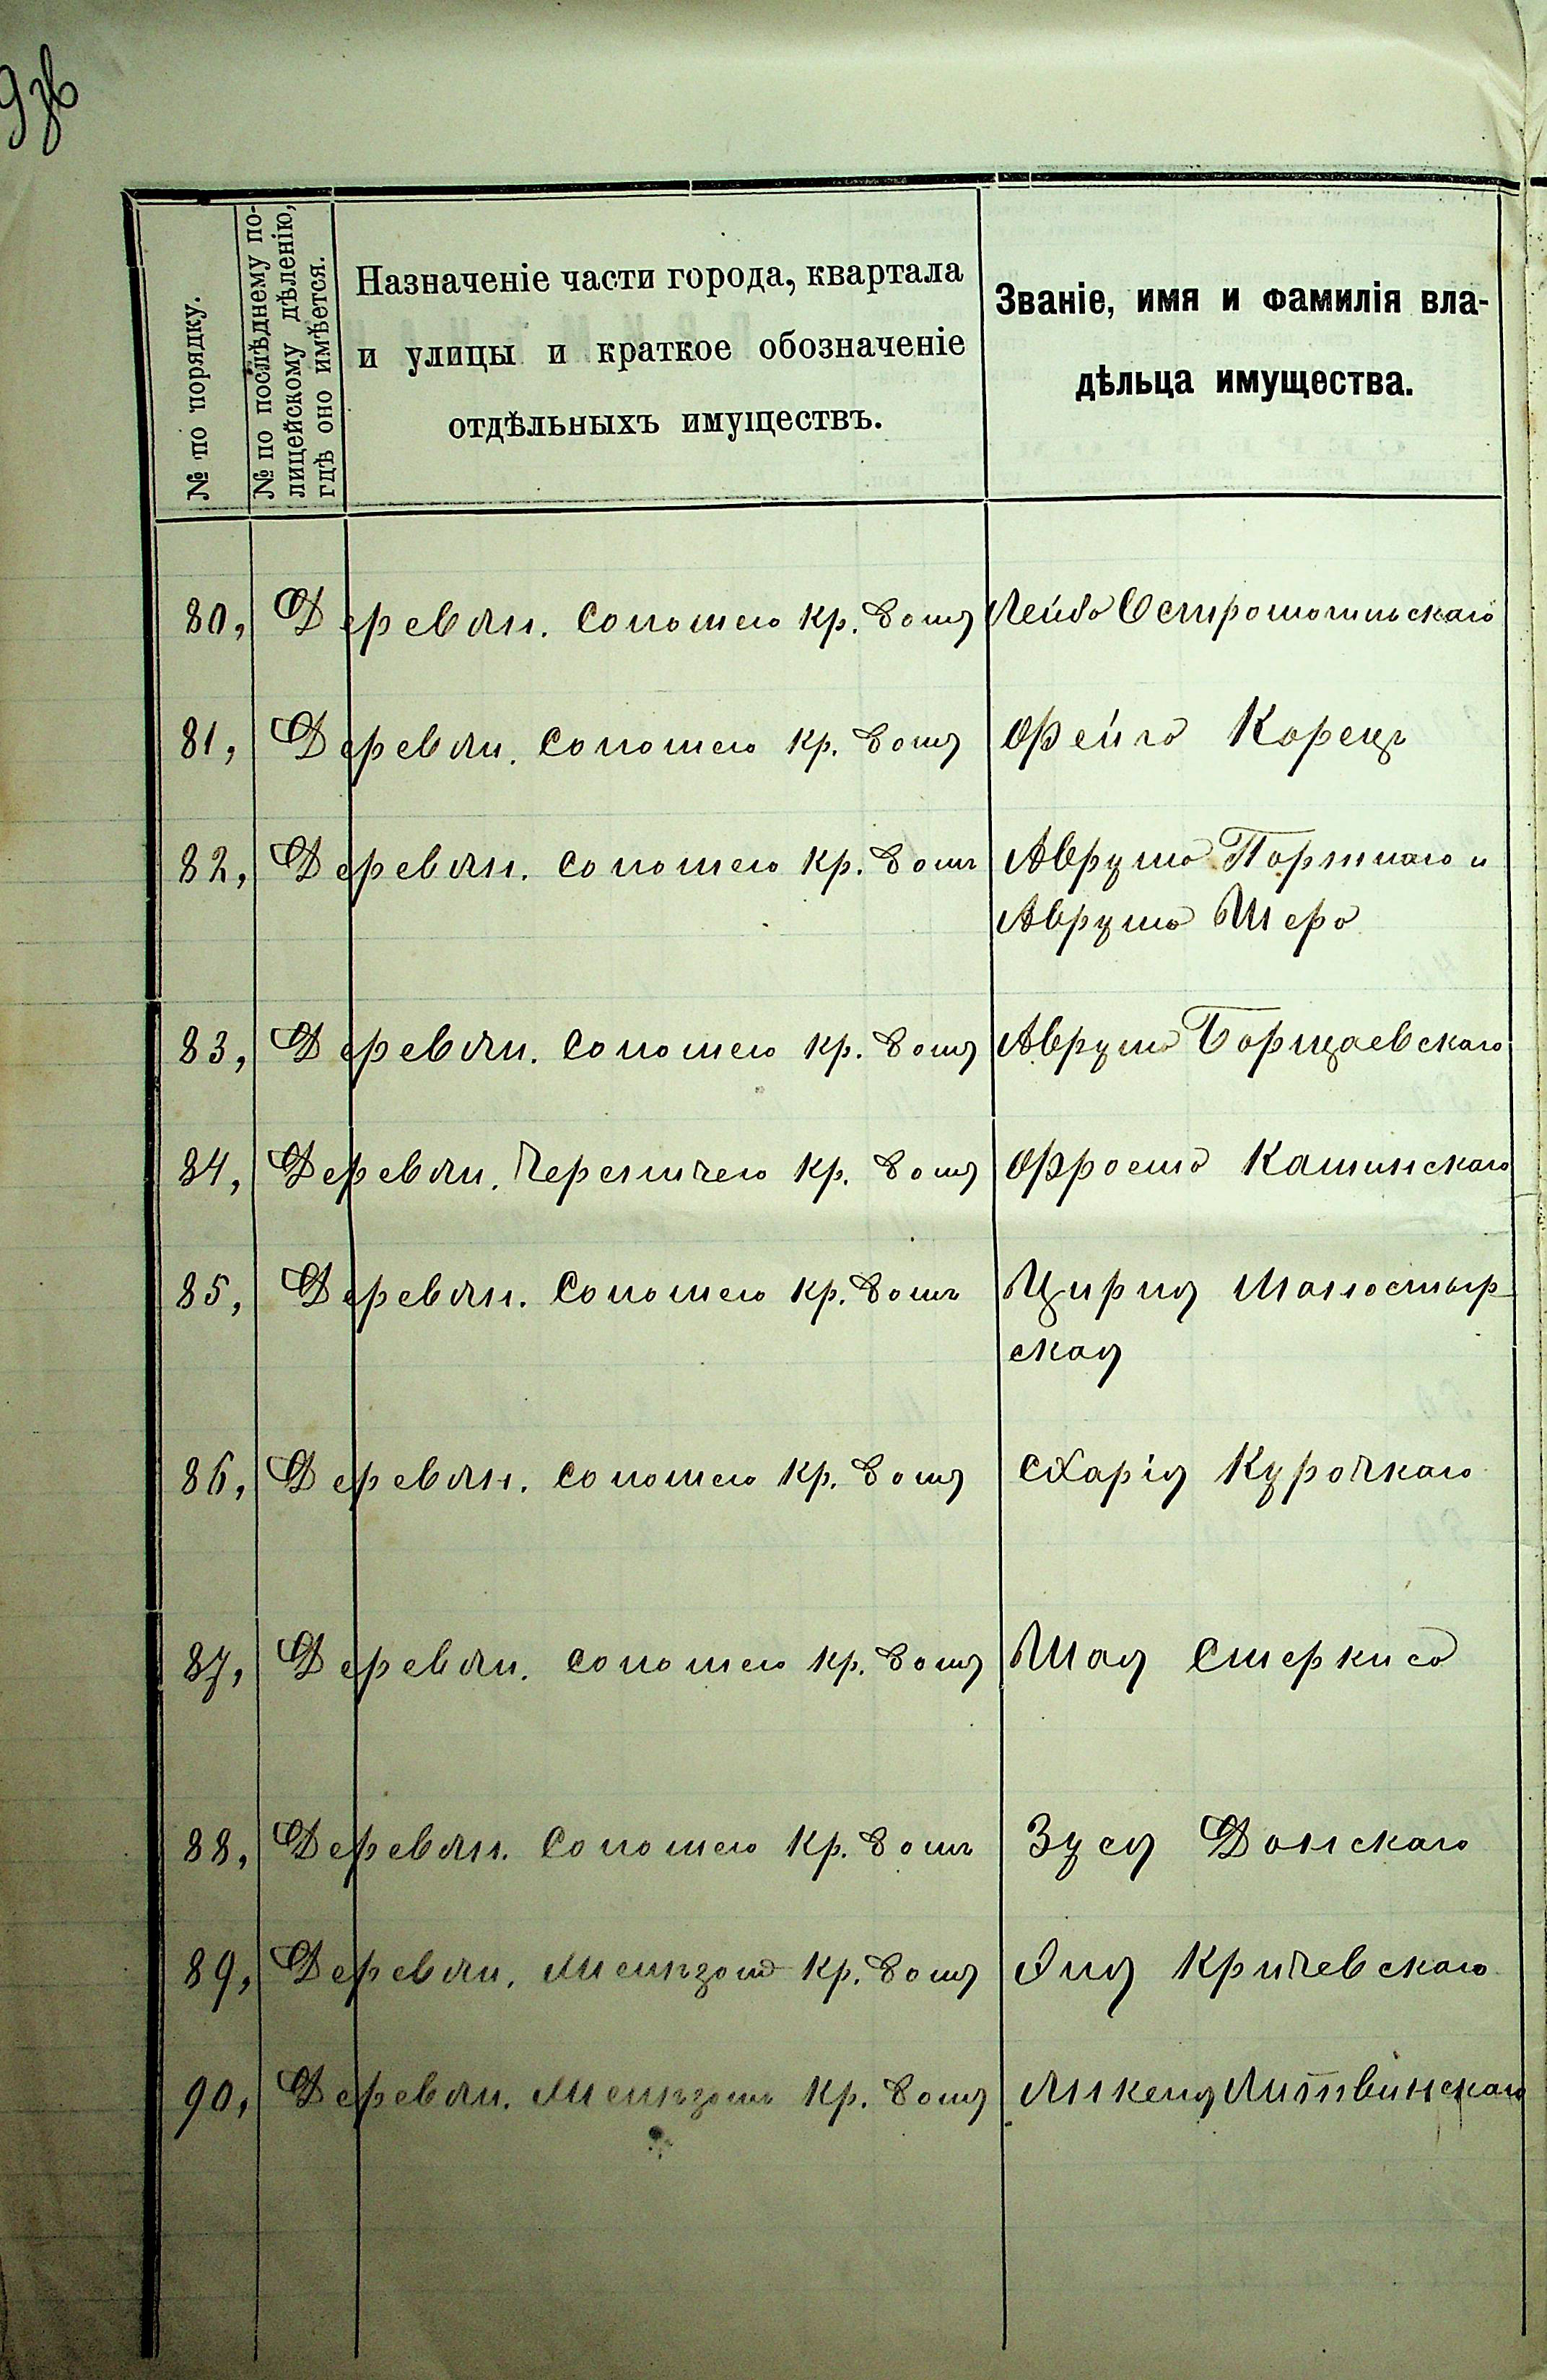 9 зв
№ по порядку.
№ по послѣднему по-
лицейскому дѣленію,
гдѣ оно имѣется.
Назначеніе части города, квартала
и улицы и краткое обозначеніе
отдѣльныхъ имуществъ.
Званіе, имя и фамилія вла-
дѣльца имущества.
80, Деревян. соломею кр. домъ Лейба Остромогильскаго
81, Деревян. соломею кр. домъ Фейга Корецъ
82, Деревян. соломею кр. домъ Аврума Портнаго и
Аврума Шеро
83, Деревян. соломею кр. домъ Аврума Борщаевскаго
84, Деревян. черепичею кр. домъ Фроема Кашинскаго
85, Деревян. соломею кр. домъ Циpия Манастыр-
ская
86, Деревян. соломею кр. домъ Харія Курочкаго
87, Деревян. соломею кр. домъ Шая Стеркиса
88, Деревян. соломею кр. домъ Зуся Донскаго
89, Деревян. кр. домъ Кричевскаго
90, Деревян. кр. домъ Литвинскаго